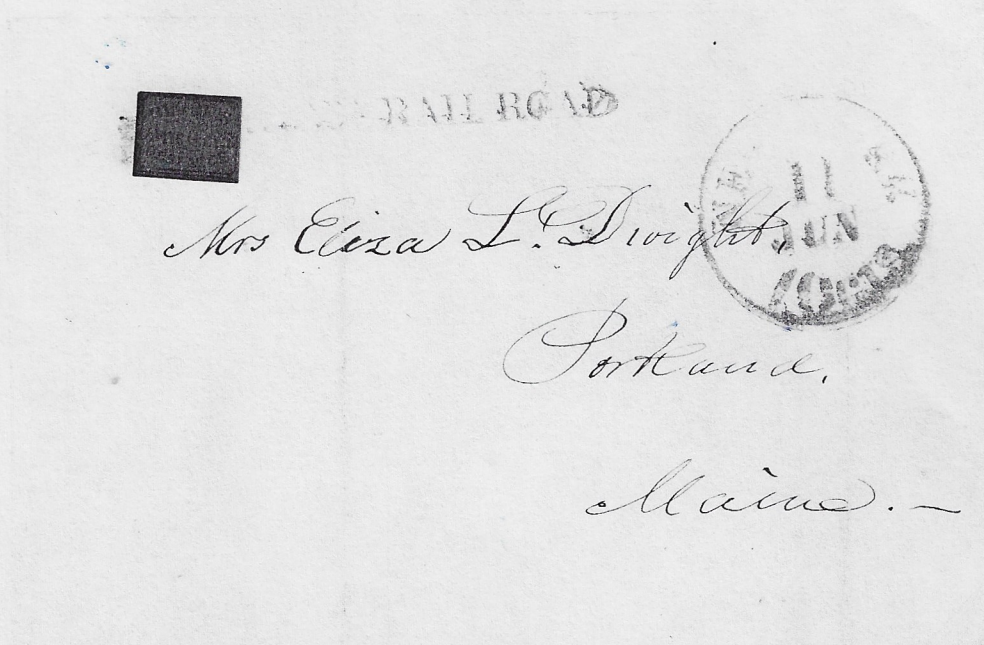 RAIL ROAD
11
JUN
10 CTS
Mrs Eliza L. Dwight,
Portland,
Maine. —